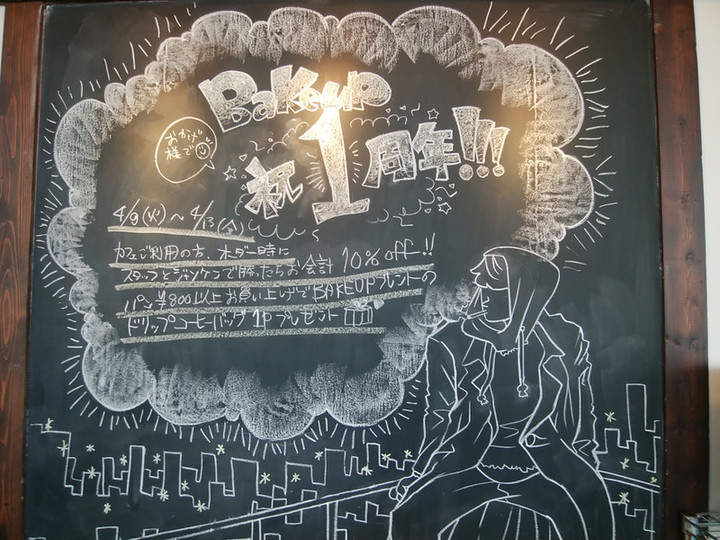 BaKeUP
おかげ
様で
祝1周年!!!
4/9(火)〜4/13(土)
カフェご利用の方、オーダー時に
スタッフとジャンケンで勝ったらお会計 10% off!!
パン¥800以上お買い上げでBAKEUPブレンドの
ドリップコーヒーバッグ 1P プレゼント